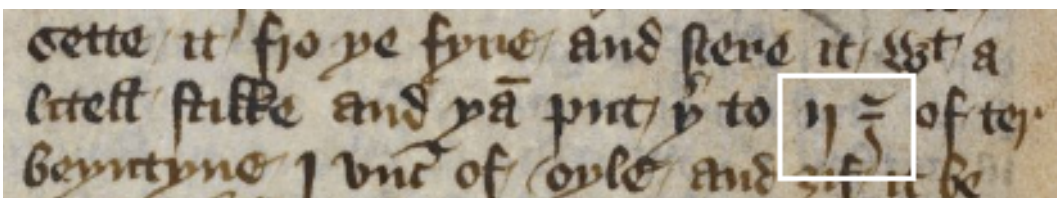 sette it fro ye fyre and stere it wt a
litell stikke and yā put yr to ij ℥ of ter
beyntyne j vnc̄ of oyle and ȝif it be